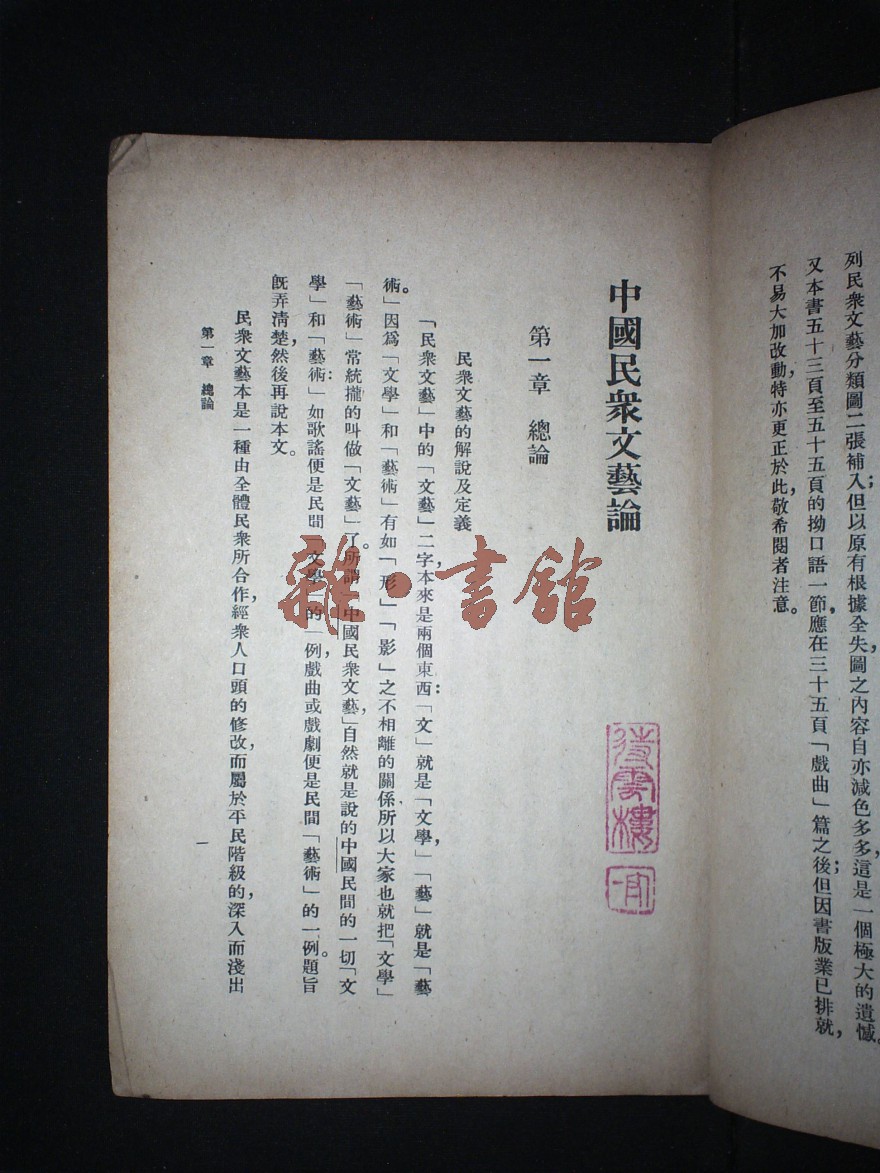 列民衆文藝分類圖二張補入；但以原有根據全失，圖之內容自亦減色多多，這是一個極大的遺憾。
又本書五十三頁至五十五頁的拗口語一節，應在三十五頁「戲曲」篇之後；但因書版業已排就，
不易大加改動，特亦更正於此，敬希閱者注意。
中國民衆文藝論
第一章　總論
民衆文藝的解說及定義
「民衆文藝」中的「文藝」二字，本來是兩個東西：「文」就是「文學」，「藝」就是「藝
術」。因爲「文學」和「藝術」有如「形」「影」之不相離的關係，所以大家也就把「文學」
「藝術」常統攏的叫做「文藝」了。所謂「中國民衆文藝」，自然就是說的中國民間的一切「文
學」和「藝術」：如歌謠便是民間「文學」的一例，戲曲或戲劇便是民間「藝術」的一例。題旨
旣弄清楚，然後再說本文。
民衆文藝本是一種由全體民衆所合作，經衆人口頭的修改，而屬於平民階級的，深入而淺出
第一章　總論
一
雜·書館
待雲樓